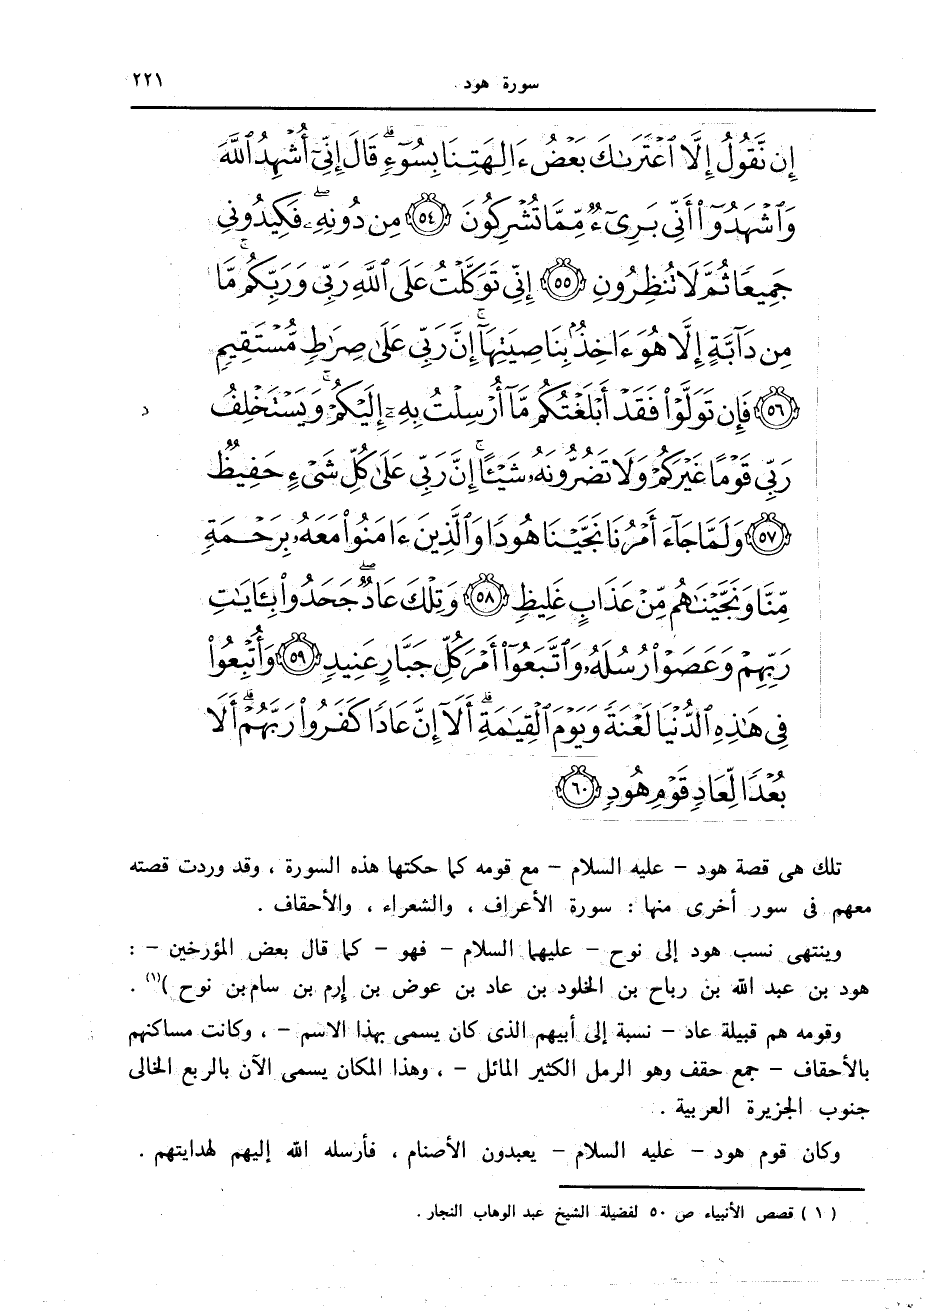 سورة هود
٢٢١
إِن نَّقُولُ إِلَّا ٱعْتَرَىٰكَ بَعْضُ ءَالِهَتِنَا بِسُوٓءٍۗ قَالَ إِنِّىٓ أُشْهِدُ ٱللَّهَ
وَٱشْهَدُوٓا۟ أَنِّى بَرِىٓءٌ مِّمَّا تُشْرِكُونَ ٥٤ مِن دُونِهِۦۖ فَكِيدُونِى
جَمِيعًا ثُمَّ لَا تُنظِرُونِ ٥٥ إِنِّى تَوَكَّلْتُ عَلَى ٱللَّهِ رَبِّى وَرَبِّكُمۚ مَّا
مِن دَآبَّةٍ إِلَّا هُوَ ءَاخِذٌۢ بِنَاصِيَتِهَآۚ إِنَّ رَبِّى عَلَىٰ صِرَٰطٍ مُّسْتَقِيمٍ
٥٦ فَإِن تَوَلَّوْا۟ فَقَدْ أَبْلَغْتُكُم مَّآ أُرْسِلْتُ بِهِۦٓ إِلَيْكُمْۚ وَيَسْتَخْلِفُ
رَبِّى قَوْمًا غَيْرَكُمْ وَلَا تَضُرُّونَهُۥ شَيْـًٔاۚ إِنَّ رَبِّى عَلَىٰ كُلِّ شَىْءٍ حَفِيظٌ
٥٧ وَلَمَّا جَآءَ أَمْرُنَا نَجَّيْنَا هُودًا وَٱلَّذِينَ ءَامَنُوا۟ مَعَهُۥ بِرَحْمَةٍ
مِّنَّا وَنَجَّيْنَٰهُم مِّنْ عَذَابٍ غَلِيظٍ ٥٨ وَتِلْكَ عَادٌۖ جَحَدُوا۟ بِـَٔايَٰتِ
رَبِّهِمْ وَعَصَوْا۟ رُسُلَهُۥ وَٱتَّبَعُوٓا۟ أَمْرَ كُلِّ جَبَّارٍ عَنِيدٍ ٥٩ وَأُتْبِعُوا۟
فِى هَٰذِهِ ٱلدُّنْيَا لَعْنَةً وَيَوْمَ ٱلْقِيَٰمَةِۗ أَلَآ إِنَّ عَادًا كَفَرُوا۟ رَبَّهُمْۗ أَلَا
بُعْدًا لِّعَادٍ قَوْمِ هُودٍ ٦٠
تلك هى قصة هود - عليه السلام - مع قومه كما حكتها هذه السورة ، وقد وردت قصته
معهم فى سور أخرى منها : سورة الأعراف ، والشعراء ، والأحقاف .
وينتهى نسب هود إلى نوح - عليهما السلام - فهو - كما قال بعض المؤرخين - :
هود بن عبد الله بن رباح بن الخلود بن عاد بن عوض بن إرم بن سام بن نوح )(١) .
وقومه هم قبيلة عاد - نسبة إلى أبيهم الذى كان يسمى بهذا الاسم - ، وكانت مساكنهم
بالأحقاف - جمع حقف وهو الرمل الكثير المائل - ، وهذا المكان يسمى الآن بالربع الخالى
جنوب الجزيرة العربية .
وكان قوم هود - عليه السلام - يعبدون الأصنام ، فأرسله الله إليهم لهدايتهم .
( ١ ) قصص الأنبياء ص ٥٠ لفضيلة الشيخ عبد الوهاب النجار .